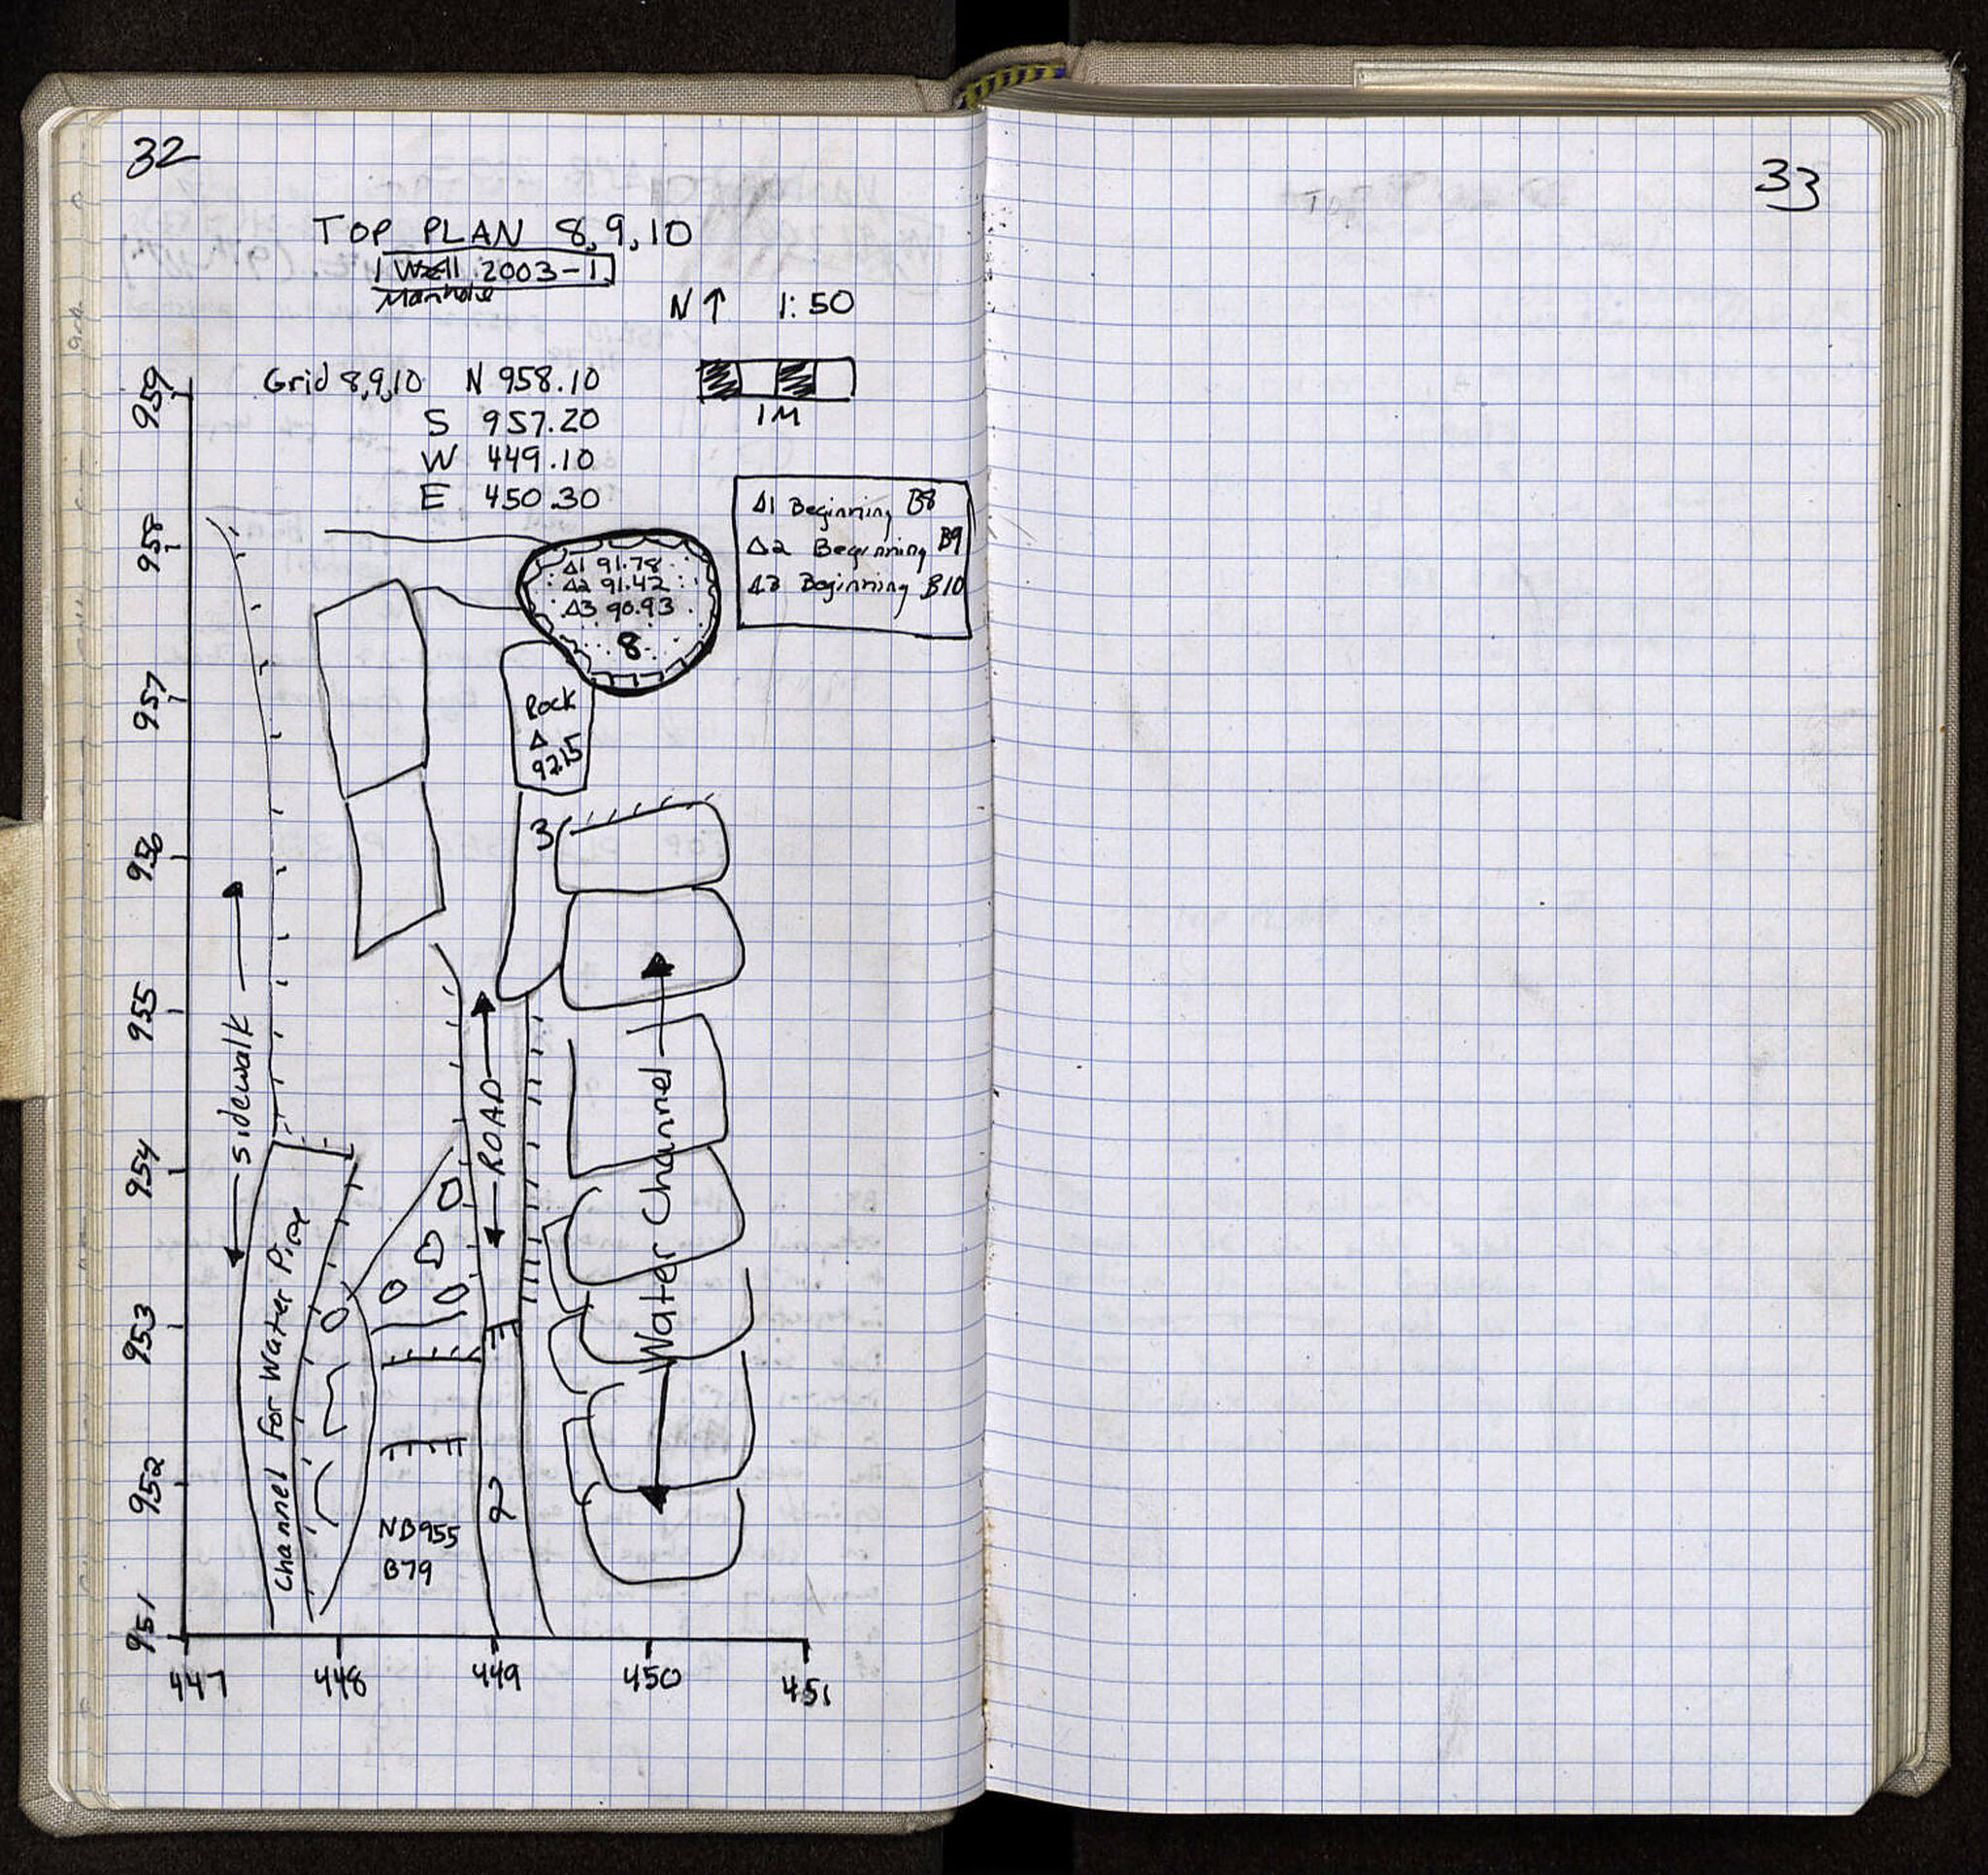 32
TOP PLAN 8,9,10
Well 2003-1
Manhole
N↑ 1:50
Grid 8,9,10 N 958.10
S 957.20
W 449.10
E 450.30
1M
Δ1 Beginning B8
Δ2 Beginning B9
Δ3 Beginning B10
Δ1 91.78
Δ2 91.42
Δ3 90.93
8
Rock
Δ
92.15
3
sidewalk
ROAD
Water Channel
Channel for Water Pipe
2
NB955
B79
959
958
957
956
955
954
953
952
951
447 448 449 450 451
33